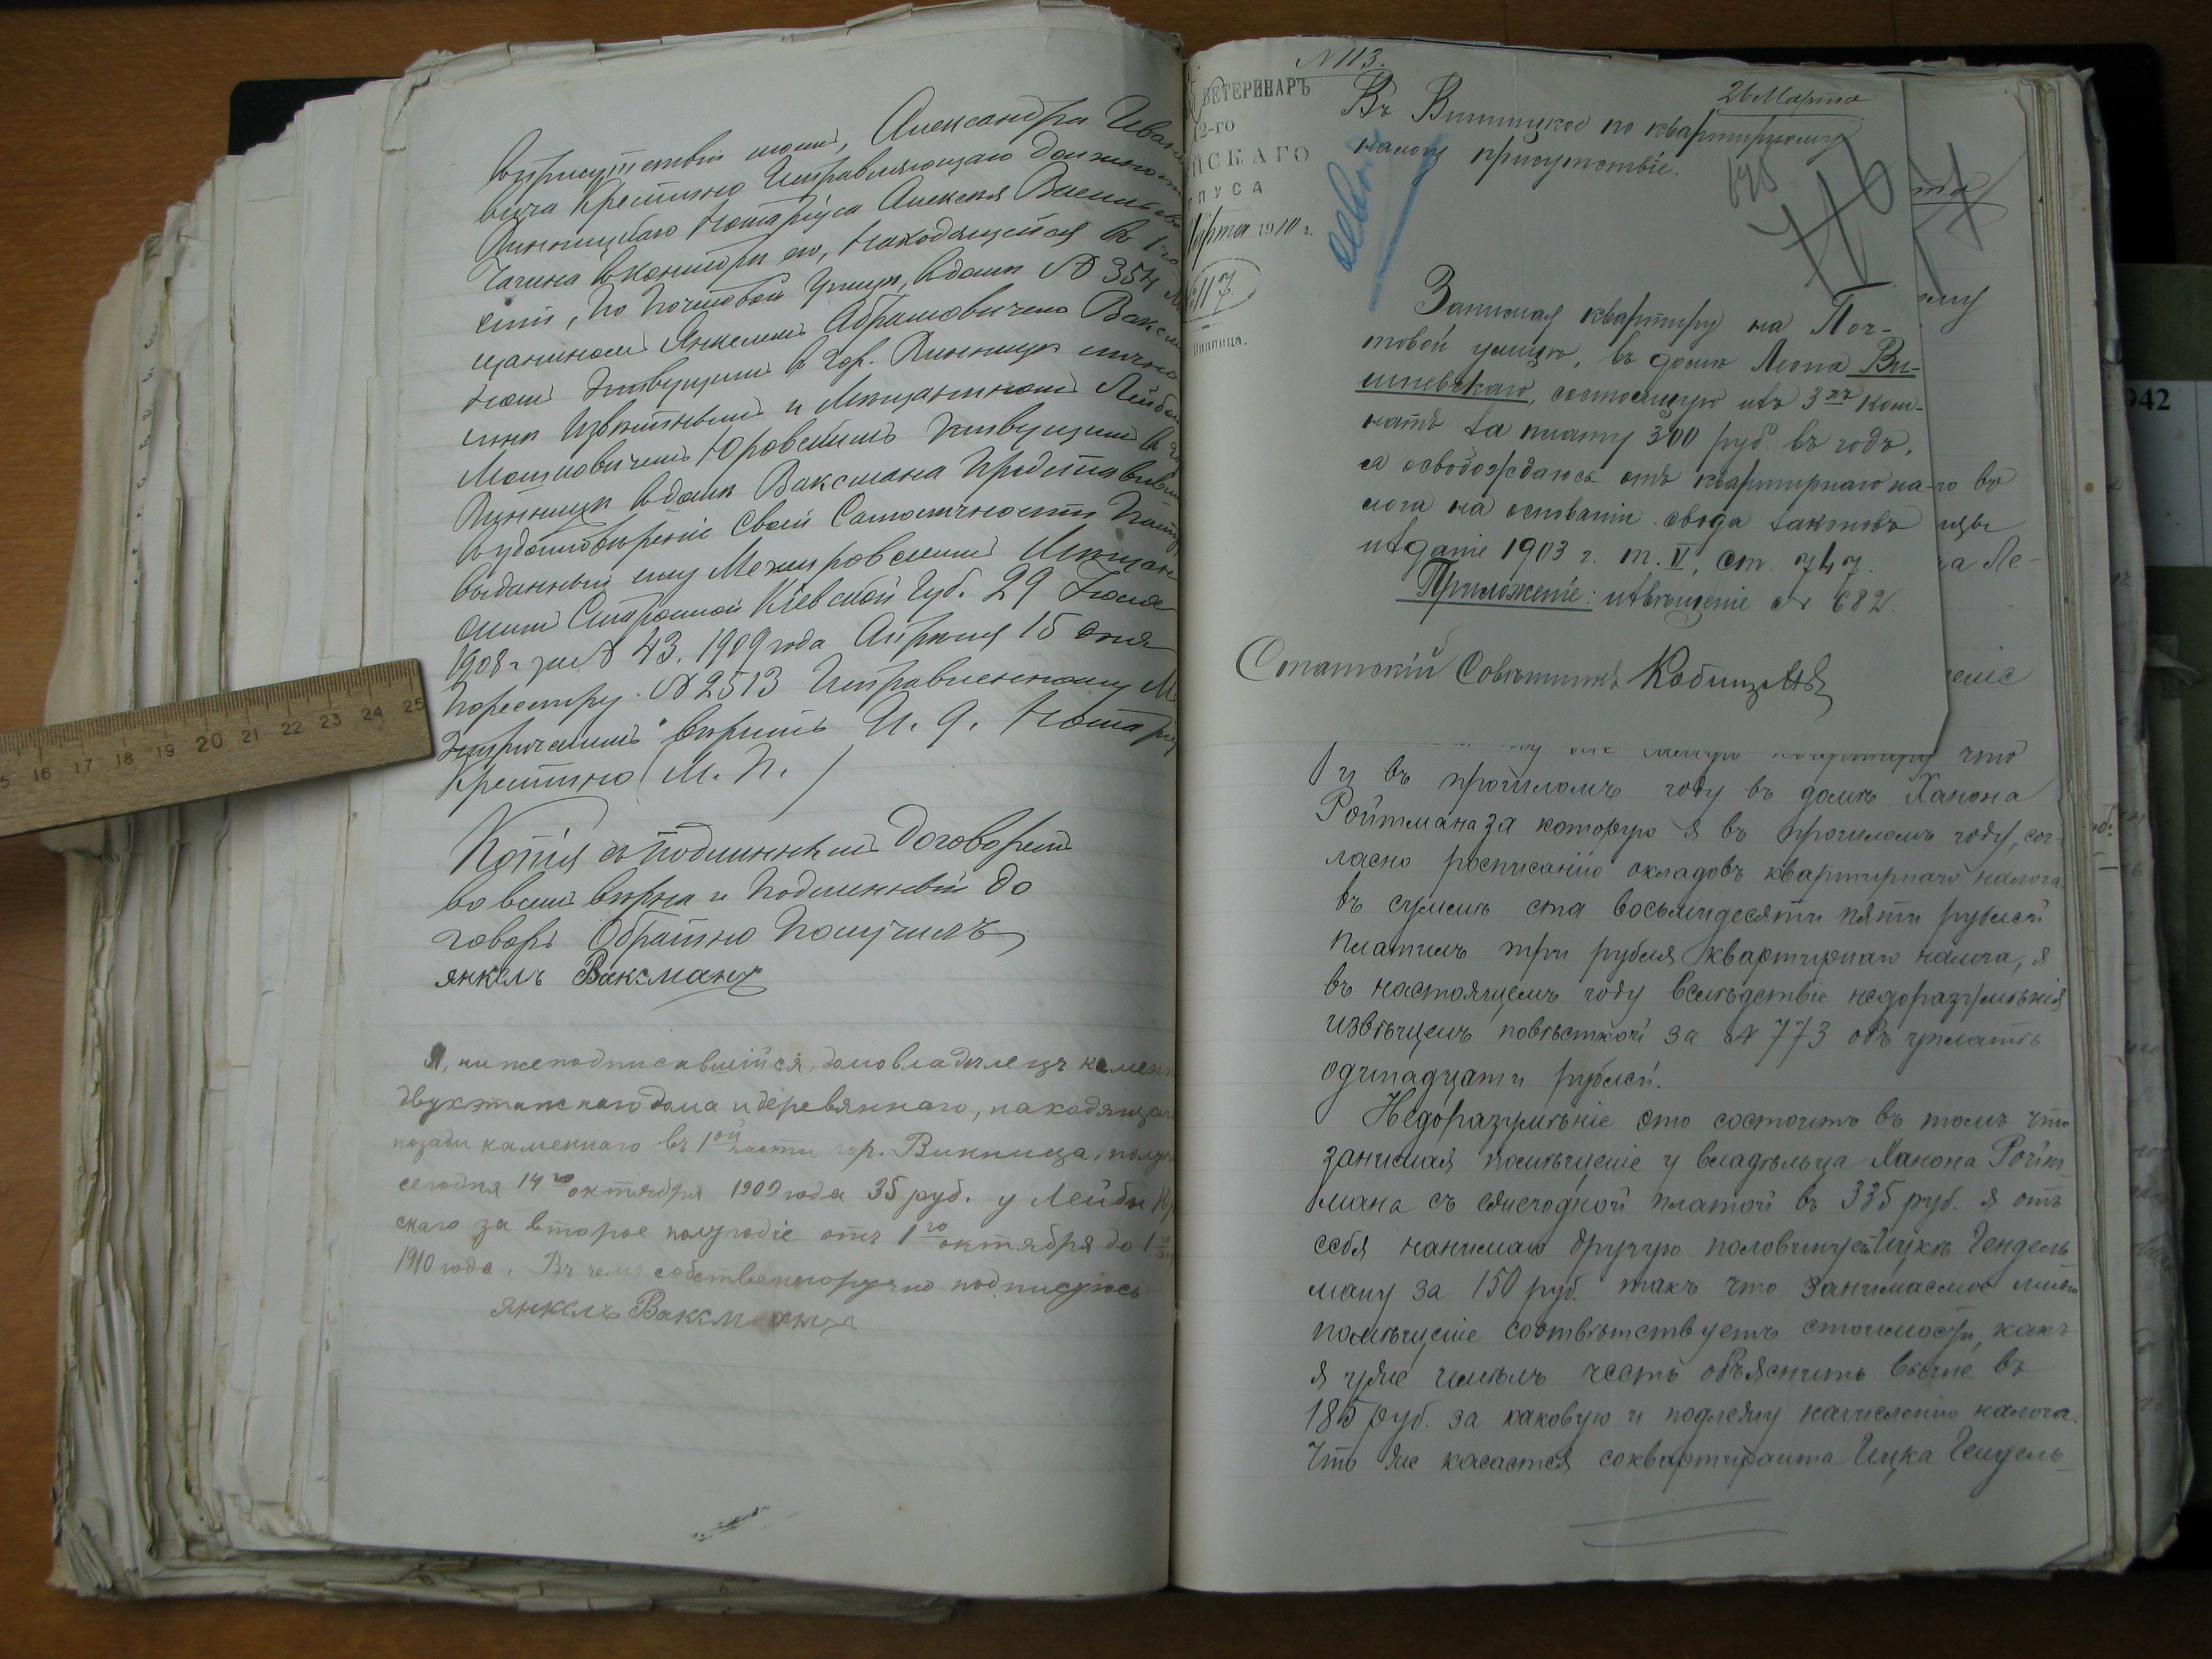 въ присутствiи моемъ, Александра Ивано
вича Кретино Исправляющаго должность
Винницкаго Нотарiуса Алексѣя Васильеви
Чагина въ конторѣ его, находящейся въ 1-го
сти, по Почтовой улицѣ, въ домѣ № 354
щаниномъ Янкелемъ Абрамовичемъ Ваксма
номъ живущимъ въ гор. Винницѣ лично
мнѣ извѣстнымъ и мѣщаниномъ Лейбой
Мошковичемъ Юровскимъ живущимъ въ
Винницѣ въ домѣ Ваксмана представив
въ удостовѣренiе своей самоличности
выданный ему Межировскимъ Мѣщан
скимъ Старостой Кiевской Губ. 29 Iюля
1908 г за № 43. 1909 года Апрѣля 15 дня
по реестру № 2513 Исправленному
вѣрить И. д. Нотарi
Кретино (М. П.)
Копiя съ подлиннымъ договоромъ
во всемъ вѣрна и подлинный до
говоръ обратно получилъ
Янкель Ваксманъ
Я, нижеподписавшiйся, домовладѣлецъ камен
двухэтажнаго дома и деревяннаго, находяща
позади каменнаго въ 1ой части гор. Винница, получ
сегодня 14го октября 1909 года 35 руб. у Лейбы Ю
скаго за второе полугодiе отъ 1го октября до 1
1910 года. Въ чемъ собственноручно подписуюсь
Янкель Ваксманъ
№ 113.
ВЕТЕРИНАРЪ
2-го
ЙСКАГО
ПУСА
марта 1910 г.
117.
Винница.
26 Марта
Въ Винницкое по квартирному
налогу присутствiе.
Занимая квартиру на Поч-
товой улицѣ, въ домѣ Леона Ви-
шневскаго, состоящую изъ 3хъ ком-
натъ за плату 300 руб. въ годъ,
я освобождаюсь отъ квартирнаго на-
лога на основанiи свода законовъ
изданiе 1903 г. т. V, ст. 747.
Приложенiе: извѣщенiе № 682.
Статскiй Совѣтникъ
что
и въ прошломъ году въ домѣ Ханона
Ройтмана за которую я въ прошломъ году, сог-
ласно росписанiю окладовъ квартирнаго налога
въ суммѣ ста восьмидесяти пяти рублей
платилъ три рубля квартирнаго налога, я
въ настоящемъ году вслѣдствiе недоразумѣнiя
извѣщемъ повѣсткой за № 773 объ уплатѣ
одинадцати рублей.
Недоразумѣнiе это состоитъ въ томъ что
занимая помѣщенiе у владѣльца Ханона Ройт
мана съ ежегодной платой въ 335 руб. я отъ
себя нанимаю другую половину Ицкѣ Гендель
ману за 150 руб. такъ что занимаемое мною
помѣщенiе соотвѣтствуетъ стоимости, какъ
я уже имѣлъ честь объяснить выше въ
185 руб. за каковую и подлежу начисленiю налога.
Что же касается соквартиранта Ицка Гендель-